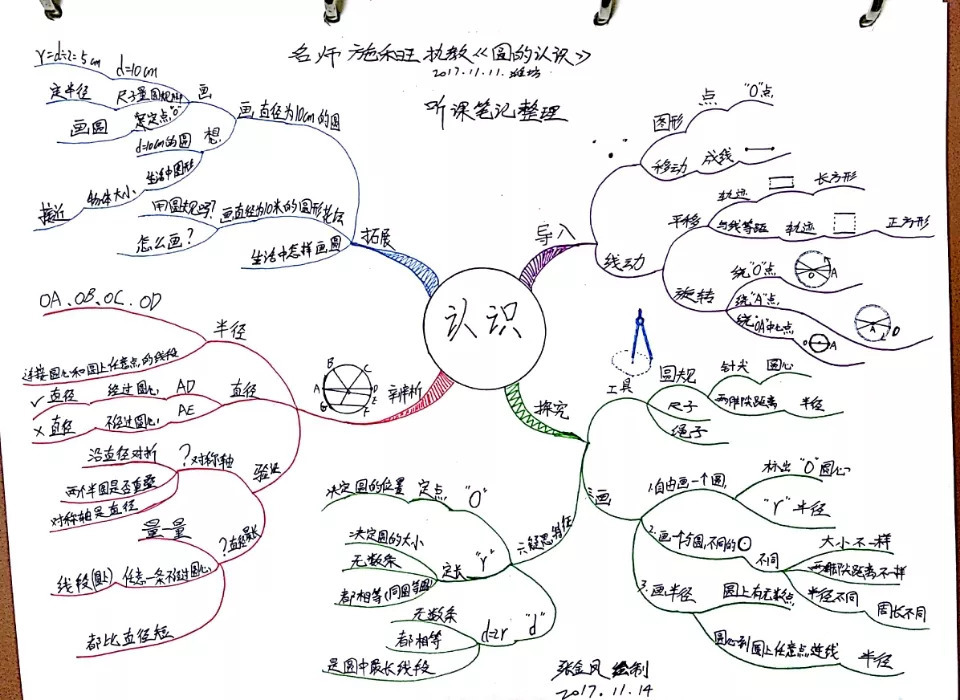 名师 施和旺 执教《圆的认识》
2017.11.11.潍坊
听课笔记整理
认识
导入
图形
点
"O"点
移动
成线
线动
平移
轨迹
长方形
与线等距
轨迹
正方形
旋转
绕"O"点
绕"A"点
绕"OA"中点
O
A
A
O
O
A
探究
工具
圆规
针尖
圆心
两脚尖距离
半径
尺子
绳子
画
1.自由画一个圆
标出"O"圆心
"r"半径
2.画一个与圆1不同的
不同
大小不一样
两脚尖距离不一样
半径不同
周长不同
3.画半径
圆上有无数点
圆心到圆上任意点连线
半径
"O"
定点
决定圆的位置
"r"
定长
决定圆的大小
无数条
都相等(同圆等圆)
"d"
d=2r
无数条
都相等
是圆中最长线段
辨析
A
B
D
E
F
半径
OA、OB、OC、OD
连接圆心和圆上任意点的线段
直径
AD
经过圆心
✓直径
AE
不经过圆心
×直径
验证
?对称轴
沿直径对折
两个半圆是否重叠
对称轴是直径
?直径最长
量一量
任意一条不经过圆心
线段(圆上)
都比直径短
拓展
画直径为10cm的圆
画
d=10cm
r=d÷2=5cm
尺子量圆规脚
定半径
定点"O"
画圆
想
d=10cm的圆
生活中圆形
物体大小
接近
画直径为10米的圆形花坛
用圆规吗?
怎么画?
生活中怎样画圆
张金凤 绘制
2017.11.14